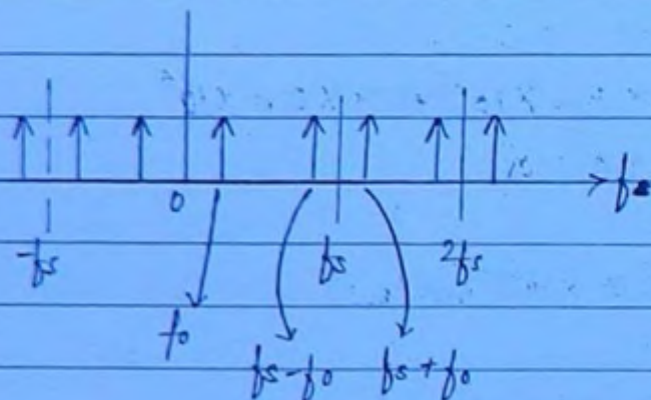 0 f
-fs fs 2fs
f0
fs-f0 fs+f0